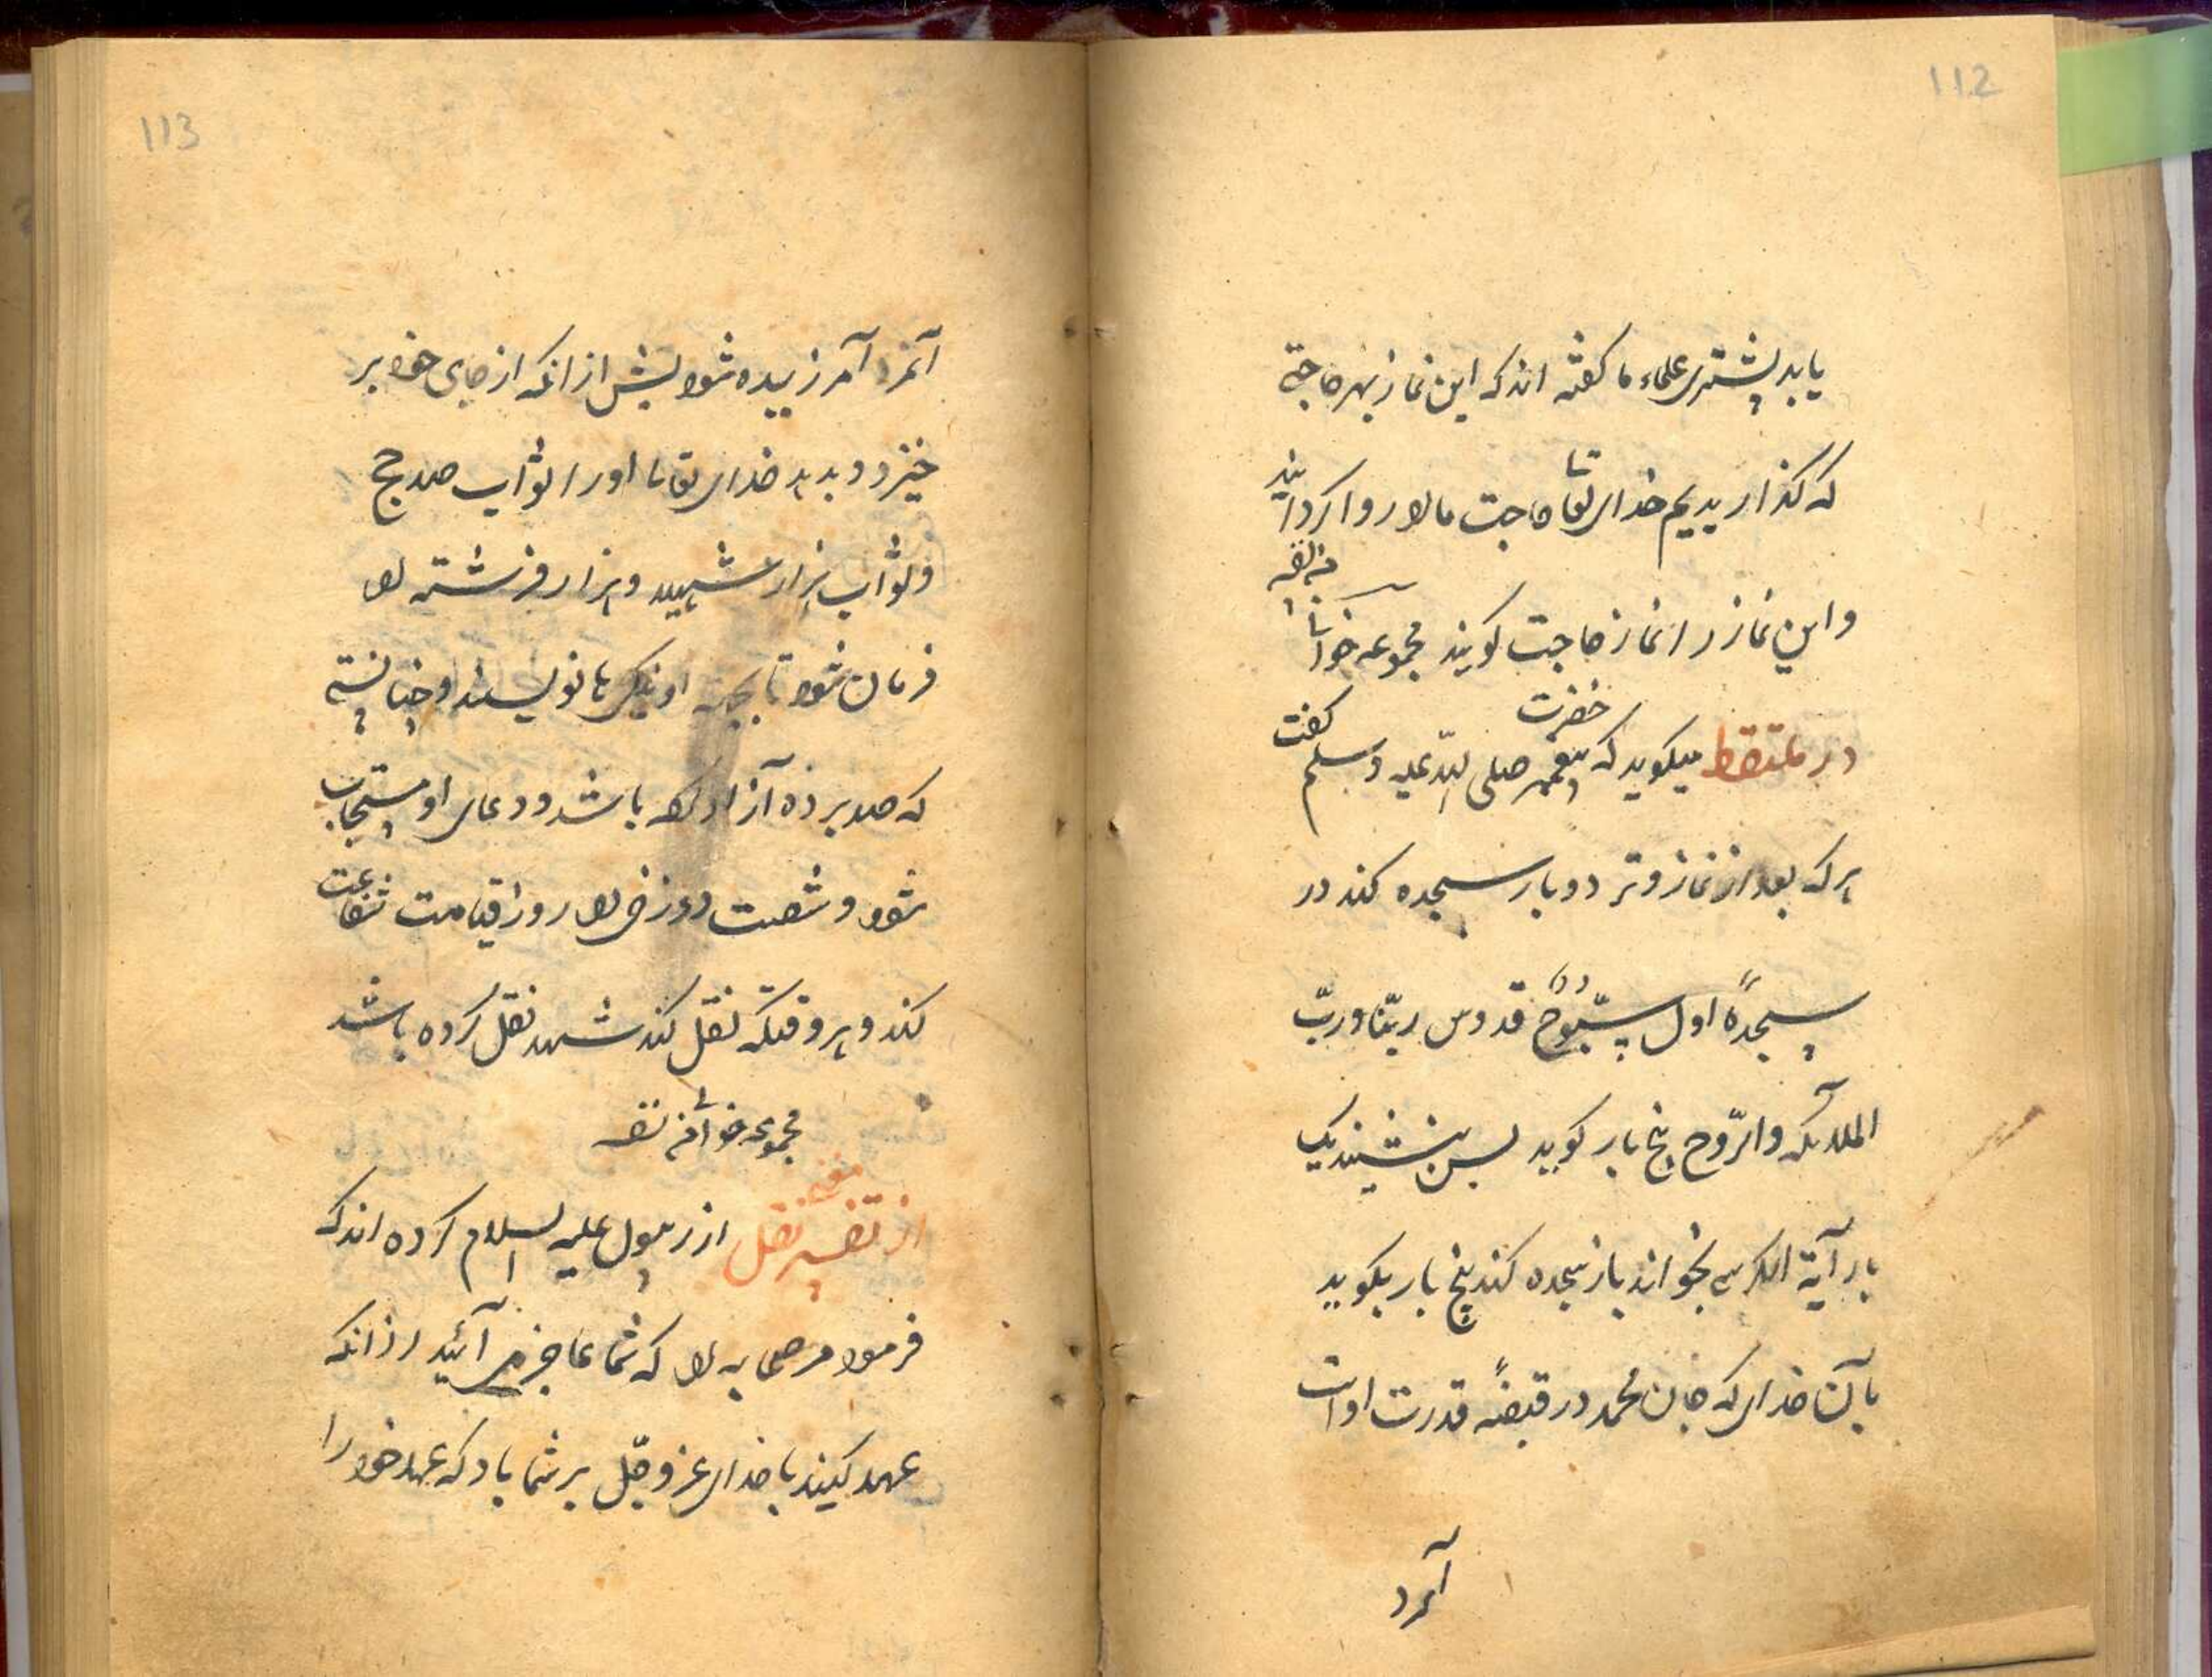 112
یابد پیشتری علماء ما گفته اند که این نماز بهر حاجتی
که گذاریدیم خدای تعا تعا حاجت ما را روا گردانید
و این نماز را نماز حاجت گویند مجموعه خوانی
در ملتقط میگوید که حضرت پیغمبر صلی الله علیه وسلم گفت
هر که بعد از نماز وتر دو بار سجده کند در
سجدهٔ اول سبّوحٌ قدوس ربّنا وربّ
الملآئکه والرّوح پنج بار گوید پس بنشیند یک
بار آیة الکرسی بخواند باز سجده کند پنج بار بگوید
بآن خدای که جان محمد در قبضهٔ قدرت اوست
آنمرد
113
آنمرد آمرزیده شود پیش از انکه از جای خود بر
خیزد و بدهد خدای تعالی او را ثواب صد حج
و ثواب هزار شهید و هزار فرشته را
فرمان شود تا بجهت او نیکی ها نویسند و چنانستی
که صد برده آزاد کرده باشد و دعای او مستجاب
شود و شصت دوزخی را روز قیامت شفاعت
کند و هر وقتیکه نقل کند شهید نقل کرده باشد
مجموعه خوانی
از تفسیر نقل از رسول علیه السلام کرده اند که
فرمود مر صحابه را که شما عاجز می آئید از انکه
عهد کنید با خدای عز و جلّ بر شما باد که عهد خود را